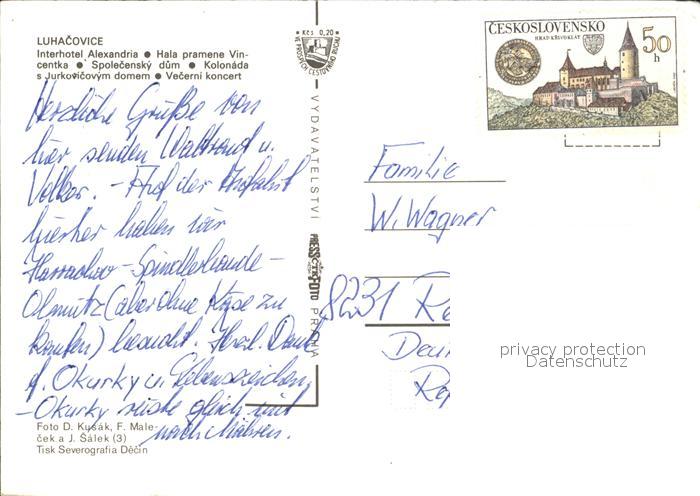 LUHAČOVICE
Interhotel Alexandria ● Hala pramene Vin-
centka ● Společenský dům ● Kolonáda
s Jurkovičovým domem ● Večerní koncert
Herzliche Grüße von
hier senden Waltraud u.
Volker. - Auf der Anfahrt
hierher haben wir
Harrachov - Spindlerbaude -
Olmütz (aber ohne Käse zu
kaufen) besucht. Herzl. Dank
f. Okurky u. Lebenszeichen,
- Okurky gleich mit
nach Mähren.
Foto D. Kusák, F. Male-
ček a J. Šálek (3)
Tisk Severografia Děčín
Kčs 0,20
VE PROSPĚCH CESTOVNÍHO RUCHU
VYDAVATELSTVÍ
PRESSFOTO
PRAHA
ČESKOSLOVENSKO
HRAD KŘIVOKLÁT
50 h
Familie
W. Wagner
8231
privacy protection
Datenschutz